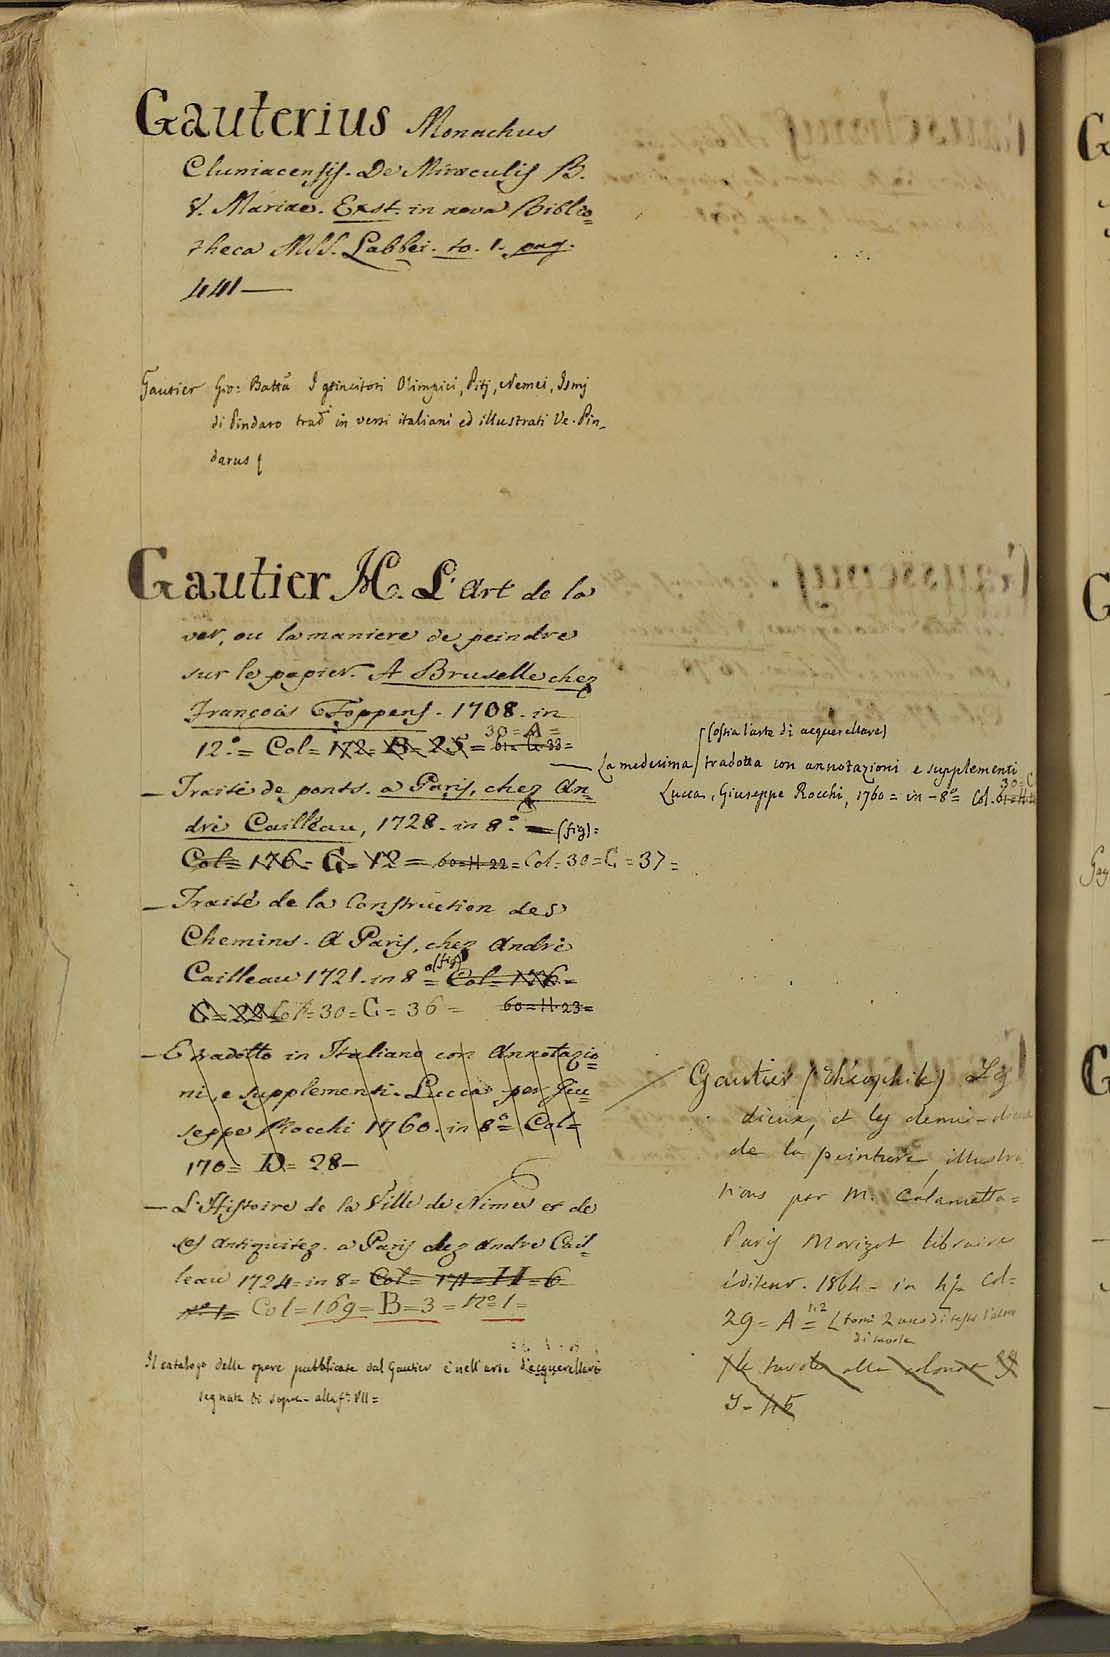 Gauterius Monachus
Cluniacensis. De Miraculis B.
V. Mariae. Exst. in nova Biblio=
theca MSS. Labbei. to. 1. pag.
441—
Gautier Gio: Batta I Olimpici, Pitj, Nemei, Ismj
di Pindaro trad. in versi italiani ed illustrati Ve. Pin-
darus
Gautier H. L'Art de la
ver, ou la maniere de peindre
sur le papier. A Bruselle chez
François Foppens. 1708. in
30=A=
12.º= Col= 172= B= 25= 61=G=33=
(ossia l'arte di acquerellare)
— La medesima tradotta con annotazioni e supplementi
Lucca, Giuseppe Rocchi, 1760= in-8º= Col.
— Traité de ponts. a Paris, chez An=
dré Cailleau, 1728. in 8º. =(fig)=
Col= 176= G= 12= 60=H=22= Col=30=C=37=
— Traité de la Construction des
Chemins. A Paris, chez André
Cailleau 1721. in 8º (fig)= Col= 176=
G= 22= Col=30=C=36= 60=H=23=
— E tradotto in Italiano con Annotazio=
ni, e supplementi. Lucca per Giu=
seppe Rocchi 1760. in 8º= Col=
170= D= 28—
— L'Histoire de la Ville de Nimes et de
ses Antiquitez. a Paris chez André Cail=
leau 1724= in 8= Col= 171= H= 6
Nº 1= Col=169= B=3= Nº 1=
Il catalogo delle opere pubblicate dal Gautier è nell'arte d'acquerellare
segnata di sopra- alla fº. VII=
Gautier (Théophile) Les
dieux, et les demi-dieux
de la peinture, illustra
tions par M. Calamatta=
Paris Morizot libraire
éditeur. 1864= in 4º Col=
29= A = 1.2 (tomi 2
di tavole
(le tavole alla colonna